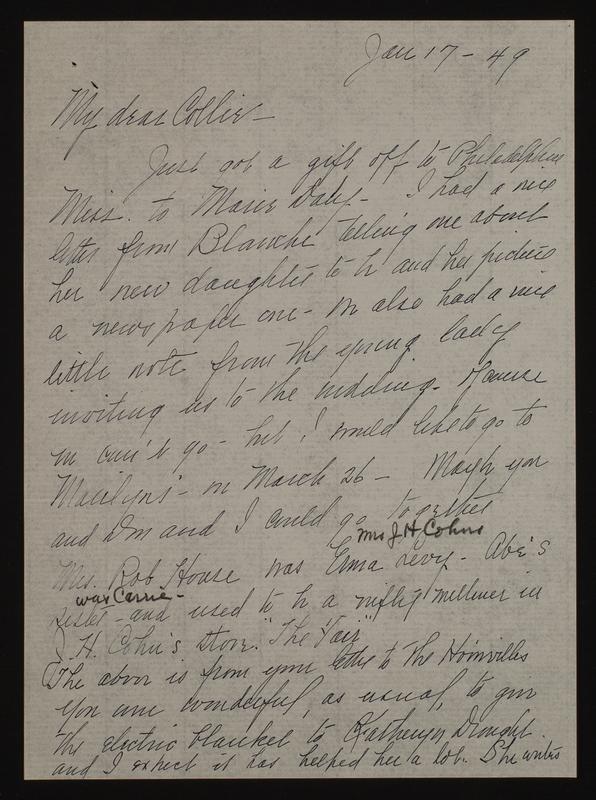 Jan 17 - 49
My dear Collie -
Just got a gift off to Philadelphia
Miss. to Marie - I had a nice
letter from Blanche telling me about
her new daughter to be and her picture
a newspaper one - We also had a nice
little note from the young lady
inviting us to the wedding. Of course
we can't go - but I would like to go to
Marilyn's - on March 26 - Maybe you
and Dm and I could go together
Mrs J. H. Cohn
Mrs. Rob House was Erma Levy - Abe's
was Carrie -
sister - and used to be a nifty milliner in
J. H. Cohn's store. "The Fair"
The above is from your letter to the
You are wonderful, as usual, to give
the electric blanket to
and I expect it has helped her a lot. She writes